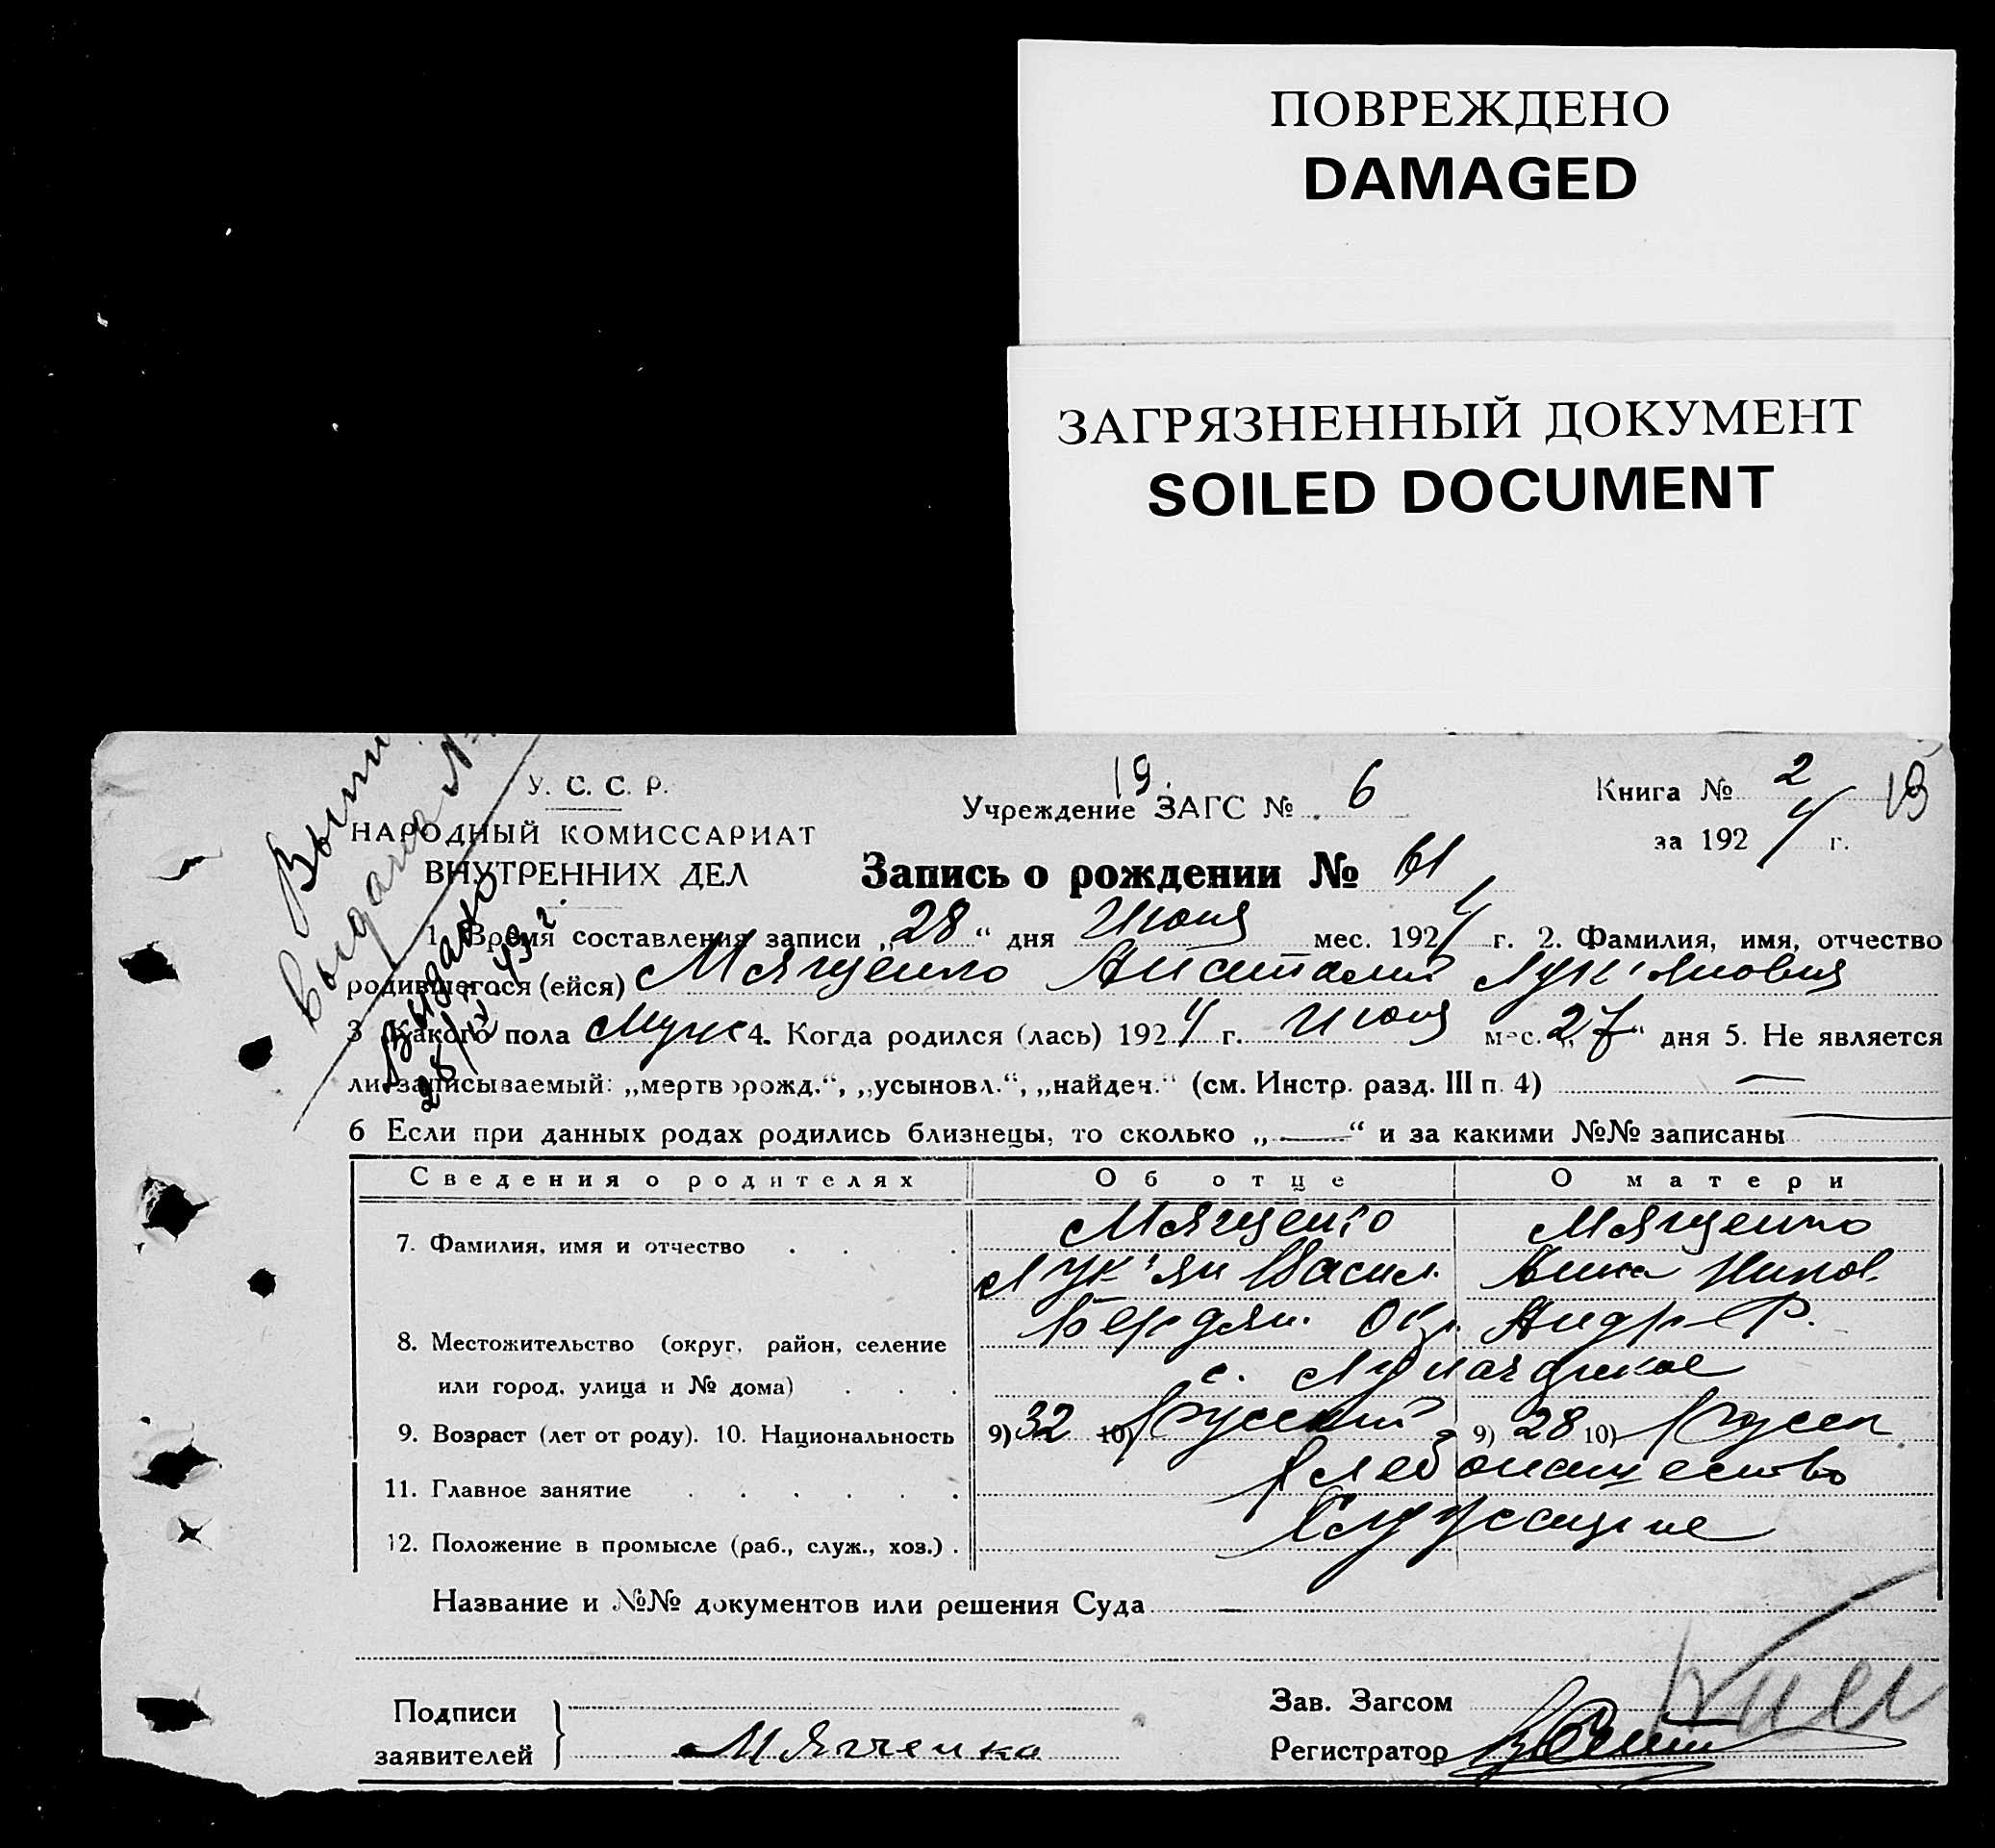 ПОВРЕЖДЕНО
DAMAGED
ЗАГРЯЗНЕННЫЙ ДОКУМЕНТ
SOILED DOCUMENT
У. С. С. Р.
НАРОДНЫЙ КОМИССАРИАТ
ВНУТРЕННИХ ДЕЛ
19.
Учреждение ЗАГС № 6
Книга № 2
19
за 1924 г.
Запись о рождении № 61
1. Время составления записи „28“ дня Июня мес. 1924 г. 2. Фамилия, имя, отчество
родившегося (ейся) Мягченко Анатолий Лук'янович
3 Какого пола Муж 4. Когда родился (лась) 1924 г. Июня мес. „27“ дня 5. Не является
ли записываемый: „мертворожд.“, „усыновл.“, „найден.“ (см. Инстр. разд. III п. 4) —
6 Если при данных родах родились близнецы, то сколько „—“ и за какими №№ записаны
Сведения о родителях Об отце О матери
7. Фамилия, имя и отчество Мягченко Мягченко
Лук'ян Васил. Анна Никол.
Бердян. Окр. Андр. Р.
8. Местожительство (округ, район, селение
или город, улица и № дома) с.
9. Возраст (лет от роду). 10. Национальность 9) 32 10) Русский 9) 28 10) Русск
11. Главное занятие Хлебопашество
12. Положение в промысле (раб., служ., хоз.)
Название и №№ документов или решения Суда —
Подписи
заявителей
Мягченко
Зав. Загсом
Регистратор
выдана №
Выдано